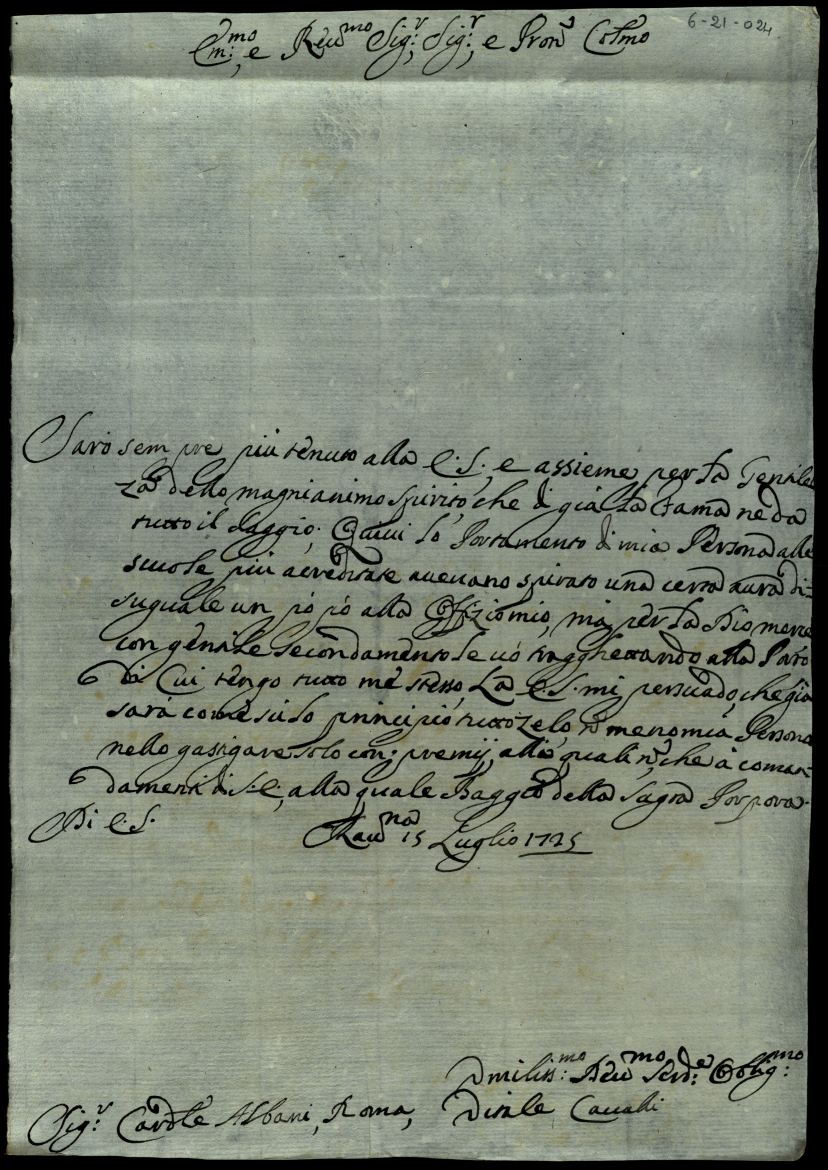 6-21-024
Em:mo, e Reu:mo Sig:r, Sig:r, e Pron:e Colmo
Sarò sempre più tenuto alla E.S., e assieme per la Gentilez
za dello magnianimo spirito, che di già la Fama ne da
tutto il saggio. Quiui lo Portamento di mia Persona alle
scuole più acreditate aueuano spirato una certa aura di-
suguale un pò pò alla Offizio mio, ma per la Dio merce
con gentile secondamento le uò tragghettando alla Porto
Di Cui tengo tutto me stesso. La E.S. mi persuado, che già
sarà come su lo principio tutto zelo, mia Persona
nello gastigare solo con premij, alli quali che à coman-
damenti di S.E., alla quale Baggio della Sagra Porpora.
Di E.S. Rauna 15 Luglio 1725
Vmiliss:mo Deu:mo Serd:e Oblig:mo
Sig:r Cardle Albani, Roma, Vitale Caualli